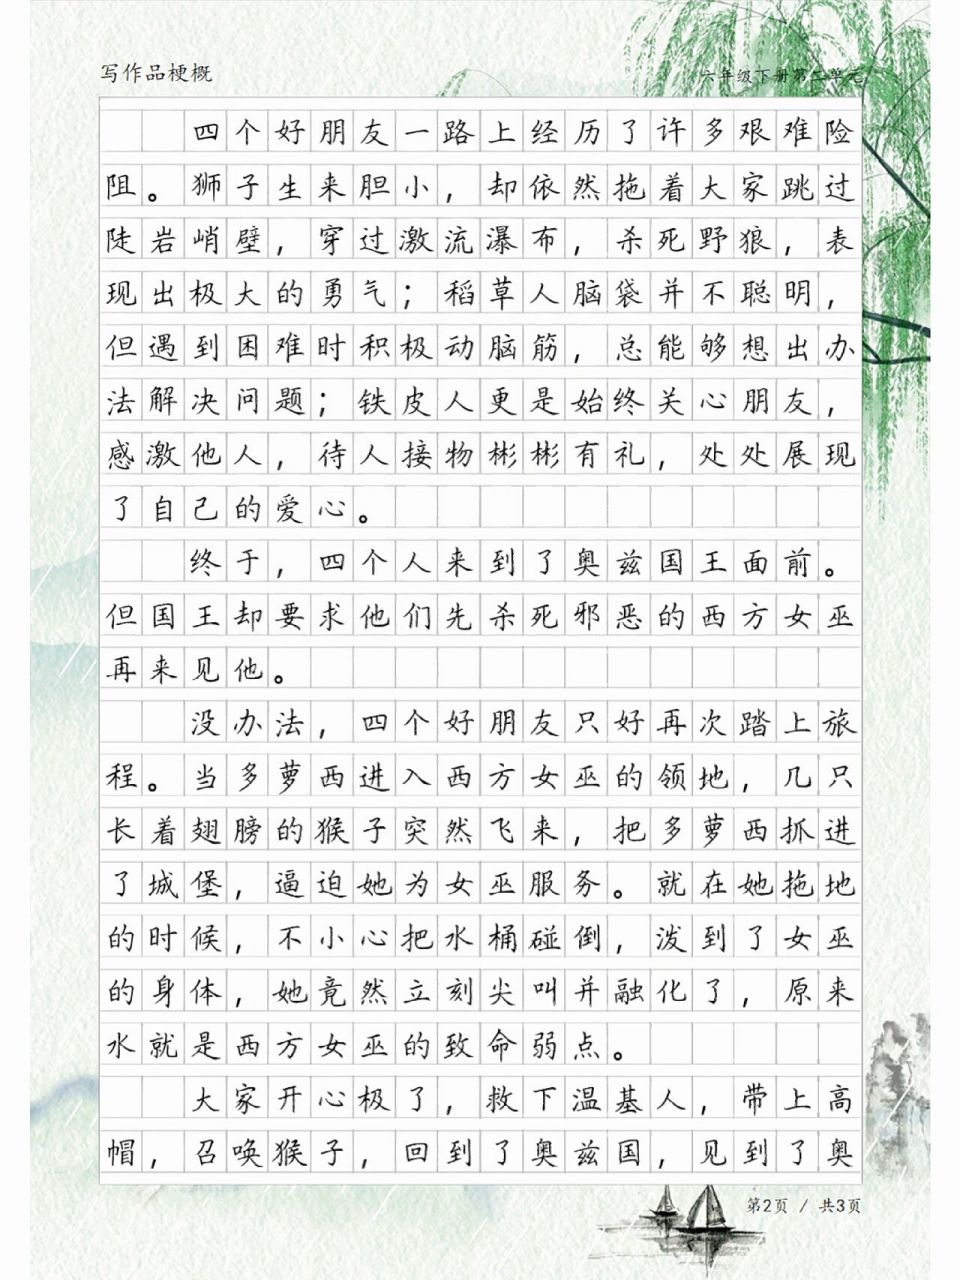 写作品梗概
六年级下册第二单元
四个好朋友一路上经历了许多艰难险
阻。狮子生来胆小，却依然拖着大家跳过
陡岩峭壁，穿过激流瀑布，杀死野狼，表
现出极大的勇气；稻草人脑袋并不聪明，
但遇到困难时积极动脑筋，总能够想出办
法解决问题；铁皮人更是始终关心朋友，
感激他人，待人接物彬彬有礼，处处展现
了自己的爱心。
终于，四个人来到了奥兹国王面前。
但国王却要求他们先杀死邪恶的西方女巫
再来见他。
没办法，四个好朋友只好再次踏上旅
程。当多萝西进入西方女巫的领地，几只
长着翅膀的猴子突然飞来，把多萝西抓进
了城堡，逼迫她为女巫服务。就在她拖地
的时候，不小心把水桶碰倒，泼到了女巫
的身体，她竟然立刻尖叫并融化了，原来
水就是西方女巫的致命弱点。
大家开心极了，救下温基人，带上高
帽，召唤猴子，回到了奥兹国，见到了奥
第2页 / 共3页